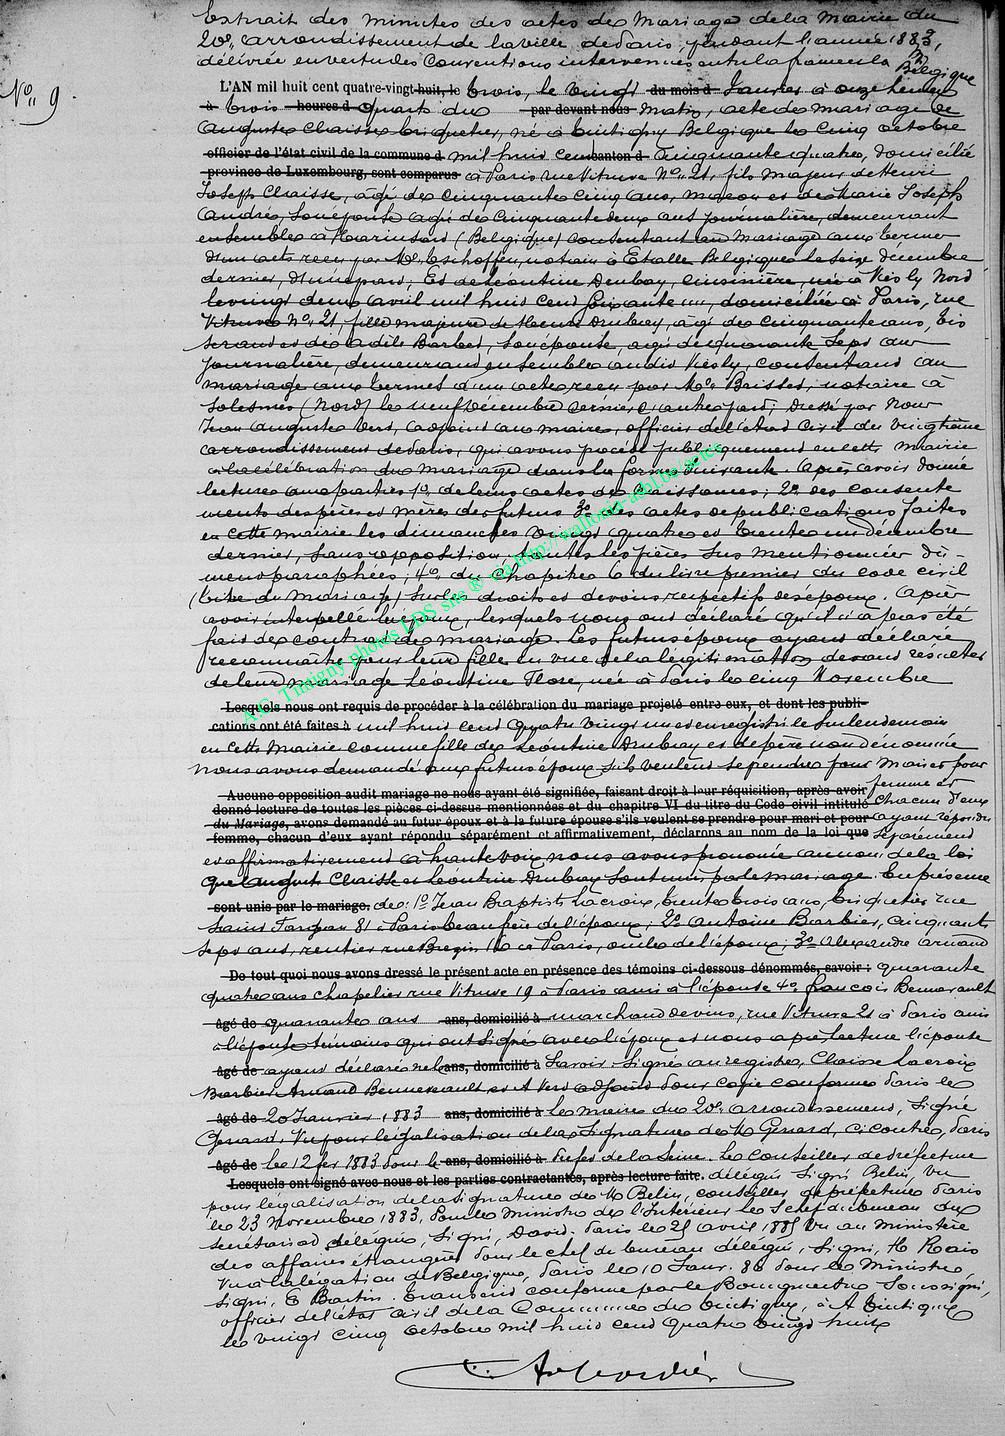 Extrait des minutes des actes de Mariage de la Mairie du
20e. arrondissement de la ville de Paris, pendant l'année 1883,
délivrée en vertu des Conventions intervenues entre la france et la
Belgique
No. 9
L'AN mil huit cent quatre-vingt-huit, le trois, le vingt du mois d Janvier à onze heures
à trois heures d quarts du par devant nous Matin, acte de mariage de
Auguste Chaisse briquetier, né à Tintigny Belgique le cinq octobre
officier de l'état civil de la commune d mil huit cent canton d Cinquante quatre, domicilié
province de Luxembourg, sont comparus à Paris rue Vitruve No. 21, fils majeur de Henri
Joseph Chaisse, âgé de cinquante cinq ans, maçon et de Marie Joseph
André, son épouse âgée de Cinquante deux ans journalière, demeurant
ensemble à Harinsart (Belgique) consentant au Mariage aux termes
d'un acte reçu par Me. notaire à Etalle Belgique le seize décembre
dernier, d'une part; Et de Léontine Drubay, cuisinière, née à Viesly Nord
le vingt deux Avril mil huit cent soixante un, domiciliée à Paris, rue
Vitruve No. 21, fille majeure de Drubay, âgé de cinquante ans, tis
serand et de Adèle Barbet, son épouse, âgée de quarante sept ans
journalière, demeurant ensemble audit Viesly, consentant au
mariage aux termes d'un acte reçu par Me. Brisset, notaire à
Solesmes (Nord) le neuf Décembre dernier, d'autre part; Dressé par Nous
Jean Auguste Vert, adjoint au maire, officier de l'état Civil du vingtième
arrondissement de Paris, qui avons procédé publiquement en cette mairie
à la célébration du mariage dans la forme suivante. Après avoir donné
lecture aux parties 1o. de leurs actes de Naissances; 2o. des consente
ments des pères et mères des futurs 3o. des actes de publications faites
en cette mairie les dimanches vingt quatre et trente un décembre
dernier, sans opposition, toutes les pièces sus mentionnées dû-
ment paraphées; 4o. du Chapitre 6 du livre premier du code civil
(titre du Mariage) sur les droits et devoirs respectifs des époux. Après
avoir interpellé les époux, lesquels nous ont déclaré qu'il n'a pas été
fait de contrat de mariage. Les futurs époux ayant déclaré
reconnaître pour leur fille en vue de la légitimation devant résulter
de leur mariage Léontine Flore, née à Paris le cinq Novembre
Lesquels nous ont requis de procéder à la célébration du mariage projeté entre eux, et dont les publi-
cations ont été faites à mil huit cent quatre vingt un et enregistrée le surlendemain
en cette Mairie comme fille de Léontine Drubay et de père non dénommé
Nous avons demandé aux futurs époux s'ils veulent se prendre pour Mari et pour
Aucune opposition audit mariage ne nous ayant été signifiée, faisant droit à leur réquisition, après avoir femme et
donné lecture de toutes les pièces ci-dessus mentionnées et du chapitre VI du titre du Code civil intitulé chacun d'eux
du Mariage, avons demandé au futur époux et à la future épouse s'ils veulent se prendre pour mari et pour ayant répondu
femme, chacun d'eux ayant répondu séparément et affirmativement, déclarons au nom de la loi que séparément
et affirmativement à haute voix nous avons prononcé au nom de la loi
que Auguste Chaisse et Léontine Drubay sont unis par le mariage. En présence
sont unis par le mariage. de: 1o. Jean Baptiste Lacroix, trente trois ans, briquetier rue
Saint Fargeau 81 à Paris beau frère de l'époux; 2o. Antoine Barbier, cinquante
sept ans, rentier rue Brezin 16 à Paris, oncle de l'époux; 3o. Alexandre Arnaud
De tout quoi nous avons dressé le présent acte en présence des témoins ci-dessous dénommés, savoir : quarante
quatre ans chapelier rue Vitruve 19 à Paris ami à l'épouse 4o. françois Bennerault
âgé de quarante ans ans, domicilié à marchand de vins, rue Vitruve 21 à Paris ami
à l'épouse témoins qui ont signé avec l'époux et nous après lecture l'épouse
âgé de ayant déclaré ne le ans, domicilié à Savoir. Signé au registre, Chaisse Lacroix
Barbier Arnaud Bennerault et A Vert adjoint Pour copie conforme Paris le
âgé de 20 Janvier 1883 ans, domicilié à Le maire du 20e. arrondissement, Signé
Genard. Vu pour légalisation de la Signature de M Genard, ci contre, Paris
âgé de le 12 fer 1883 Pour le ans, domicilié à Préfet de la Seine. Le Conseiller de Préfecture
Lesquels ont signé avec nous et les parties contractantes, après lecture faite. délégué Signé Belin, Vu
pour légalisation de la signature de M Belin, conseiller de préfecture Paris
le 23 Novembre 1883, Pour le Ministre de l'Intérieur le S chef du bureau du
secrétariat délégué, Signé, David. Paris le 25 avril 1885 Vu au Ministère
des affaires étrangères Pour le chef de bureau délégué, Signé, H Rais
Vu à la légation de Belgique, Paris le 10 Janr. 86 Pour le Ministre,
Signé, E Bastin. Transcrit conforme par le Bourgmestre Soussigné,
officier de l'état civil de la Commune de Tintigny, à Tintigny
le vingt cinq octobre mil huit cent quatre vingt huit
A.C. Tintigny photos LDS sns ® via http://wallonia-asbl.be/actes